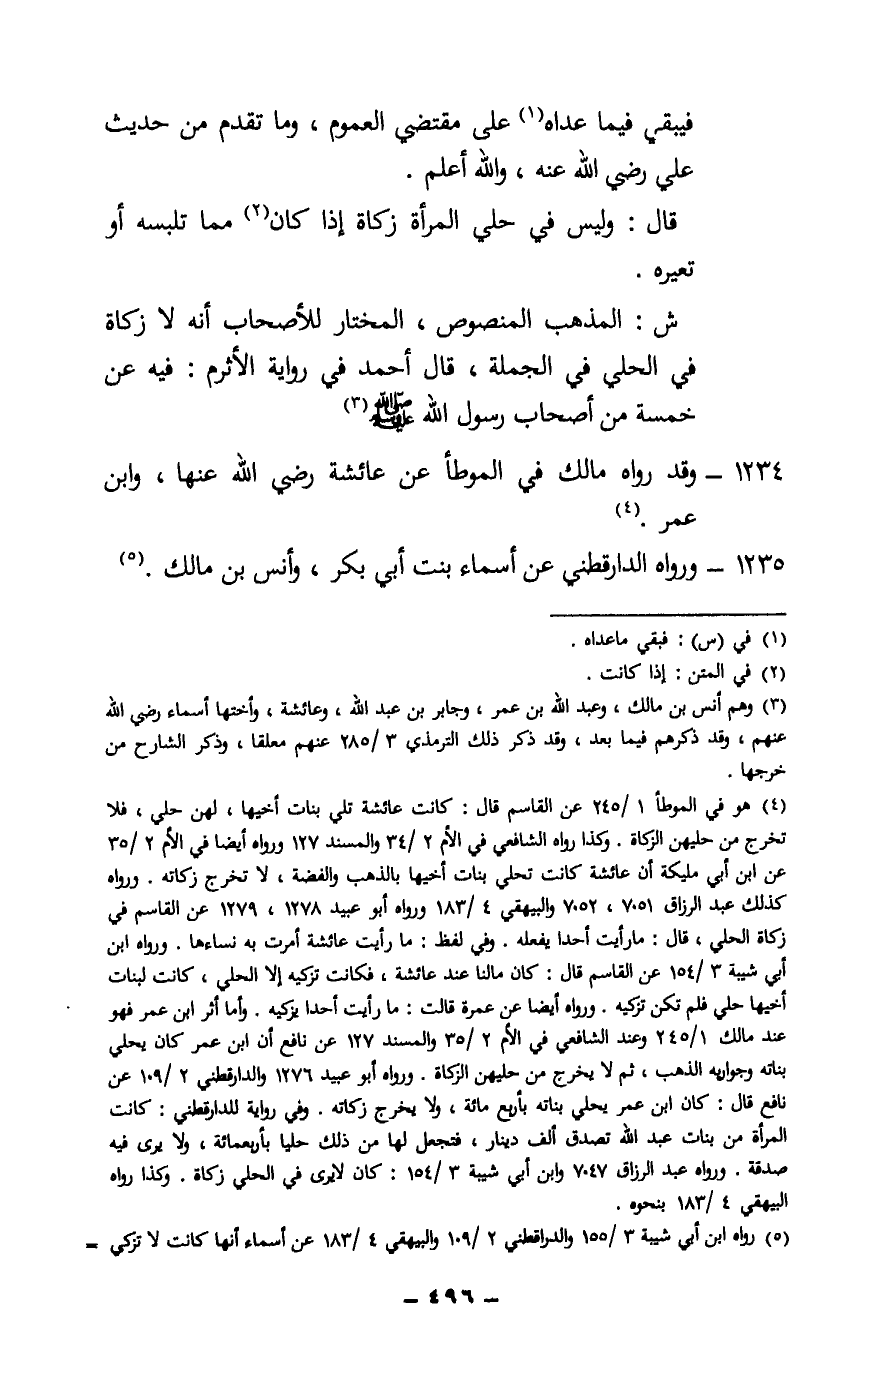 فيبقي فيما عداه(١) على مقتضي العموم ، وما تقدم من حديث
علي رضي الله عنه ، والله أعلم .
قال : وليس في حلي المرأة زكاة إذا كان(٢) مما تلبسه أو
تعيره .
ش : المذهب المنصوص ، المختار للأصحاب أنه لا زكاة
في الحلي في الجملة ، قال أحمد في رواية الأثرم : فيه عن
خمسة من أصحاب رسول الله ﷺ(٣)
١٢٣٤ – وقد رواه مالك في الموطأ عن عائشة رضي الله عنها ، وابن
عمر .(٤)
١٢٣٥ – ورواه الدارقطني عن أسماء بنت أبي بكر ، وأنس بن مالك .(٥)
(١) في (س) : فبقي ماعداه .
(٢) في المتن : إذا كانت .
(٣) وهم أنس بن مالك ، وعبد الله بن عمر ، وجابر بن عبد الله ، وعائشة ، وأختها أسماء رضي الله
عنهم ، وقد ذكرهم فيما بعد ، وقد ذكر ذلك الترمذي ٣ /٢٨٥ عنهم معلقا ، وذكر الشارح من
خرجها .
(٤) هو في الموطأ ١ /٢٤٥ عن القاسم قال : كانت عائشة تلي بنات أخيها ، لهن حلي ، فلا
تخرج من حليهن الزكاة . وكذا رواه الشافعي في الأم ٢ /٣٤ والمسند ١٢٧ ورواه أيضا في الأم ٢ /٣٥
عن ابن أبي مليكة أن عائشة كانت تحلي بنات أخيها بالذهب والفضة ، لا تخرج زكاته . ورواه
كذلك عبد الرزاق ٧٠٥١ ، ٧٠٥٢ والبيهقي ٤ /١٨٣ ورواه أبو عبيد ١٢٧٨ ، ١٢٧٩ عن القاسم في
زكاة الحلي ، قال : مارأيت أحدا يفعله . وفي لفظ : ما رأيت عائشة أمرت به نساءها . ورواه ابن
أبي شيبة ٣ /١٥٤ عن القاسم قال : كان مالنا عند عائشة ، فكانت تزكيه إلا الحلي ، كانت لبنات
أخيها حلي فلم تكن تزكيه . ورواه أيضا عن عمرة قالت : ما رأيت أحدا يزكيه . وأما أثر ابن عمر فهو
عند مالك ٢٤٥/١ وعند الشافعي في الأم ٢ /٣٥ والمسند ١٢٧ عن نافع أن ابن عمر كان يحلي
بناته وجواريه الذهب ، ثم لا يخرج من حليهن الزكاة . ورواه أبو عبيد ١٢٧٦ والدارقطني ٢ /١٠٩ عن
نافع قال : كان ابن عمر يحلي بناته بأربع مائة ، ولا يخرج زكاته . وفي رواية للدارقطني : كانت
المرأة من بنات عبد الله تصدق ألف دينار ، فتجعل لها من ذلك حليا بأربعمائة ، ولا يرى فيه
صدقة . ورواه عبد الرزاق ٧٠٤٧ وابن أبي شيبة ٣ /١٥٤ : كان لايرى في الحلي زكاة . وكذا رواه
البيهقي ٤ /١٨٣ بنحوه .
(٥) رواه ابن أبي شيبة ٣ /١٥٥ والدراقطني ٢ /١٠٩ والبيهقي ٤ /١٨٣ عن أسماء أنها كانت لا تزكي =
– ٤٩٦ –